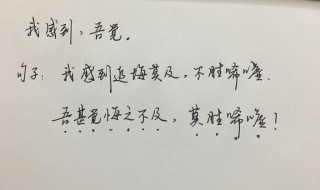 我感到：吾觉。
句子：我感到追悔莫及，不胜唏嘘．
吾甚觉悔之不及，莫胜唏嘘！